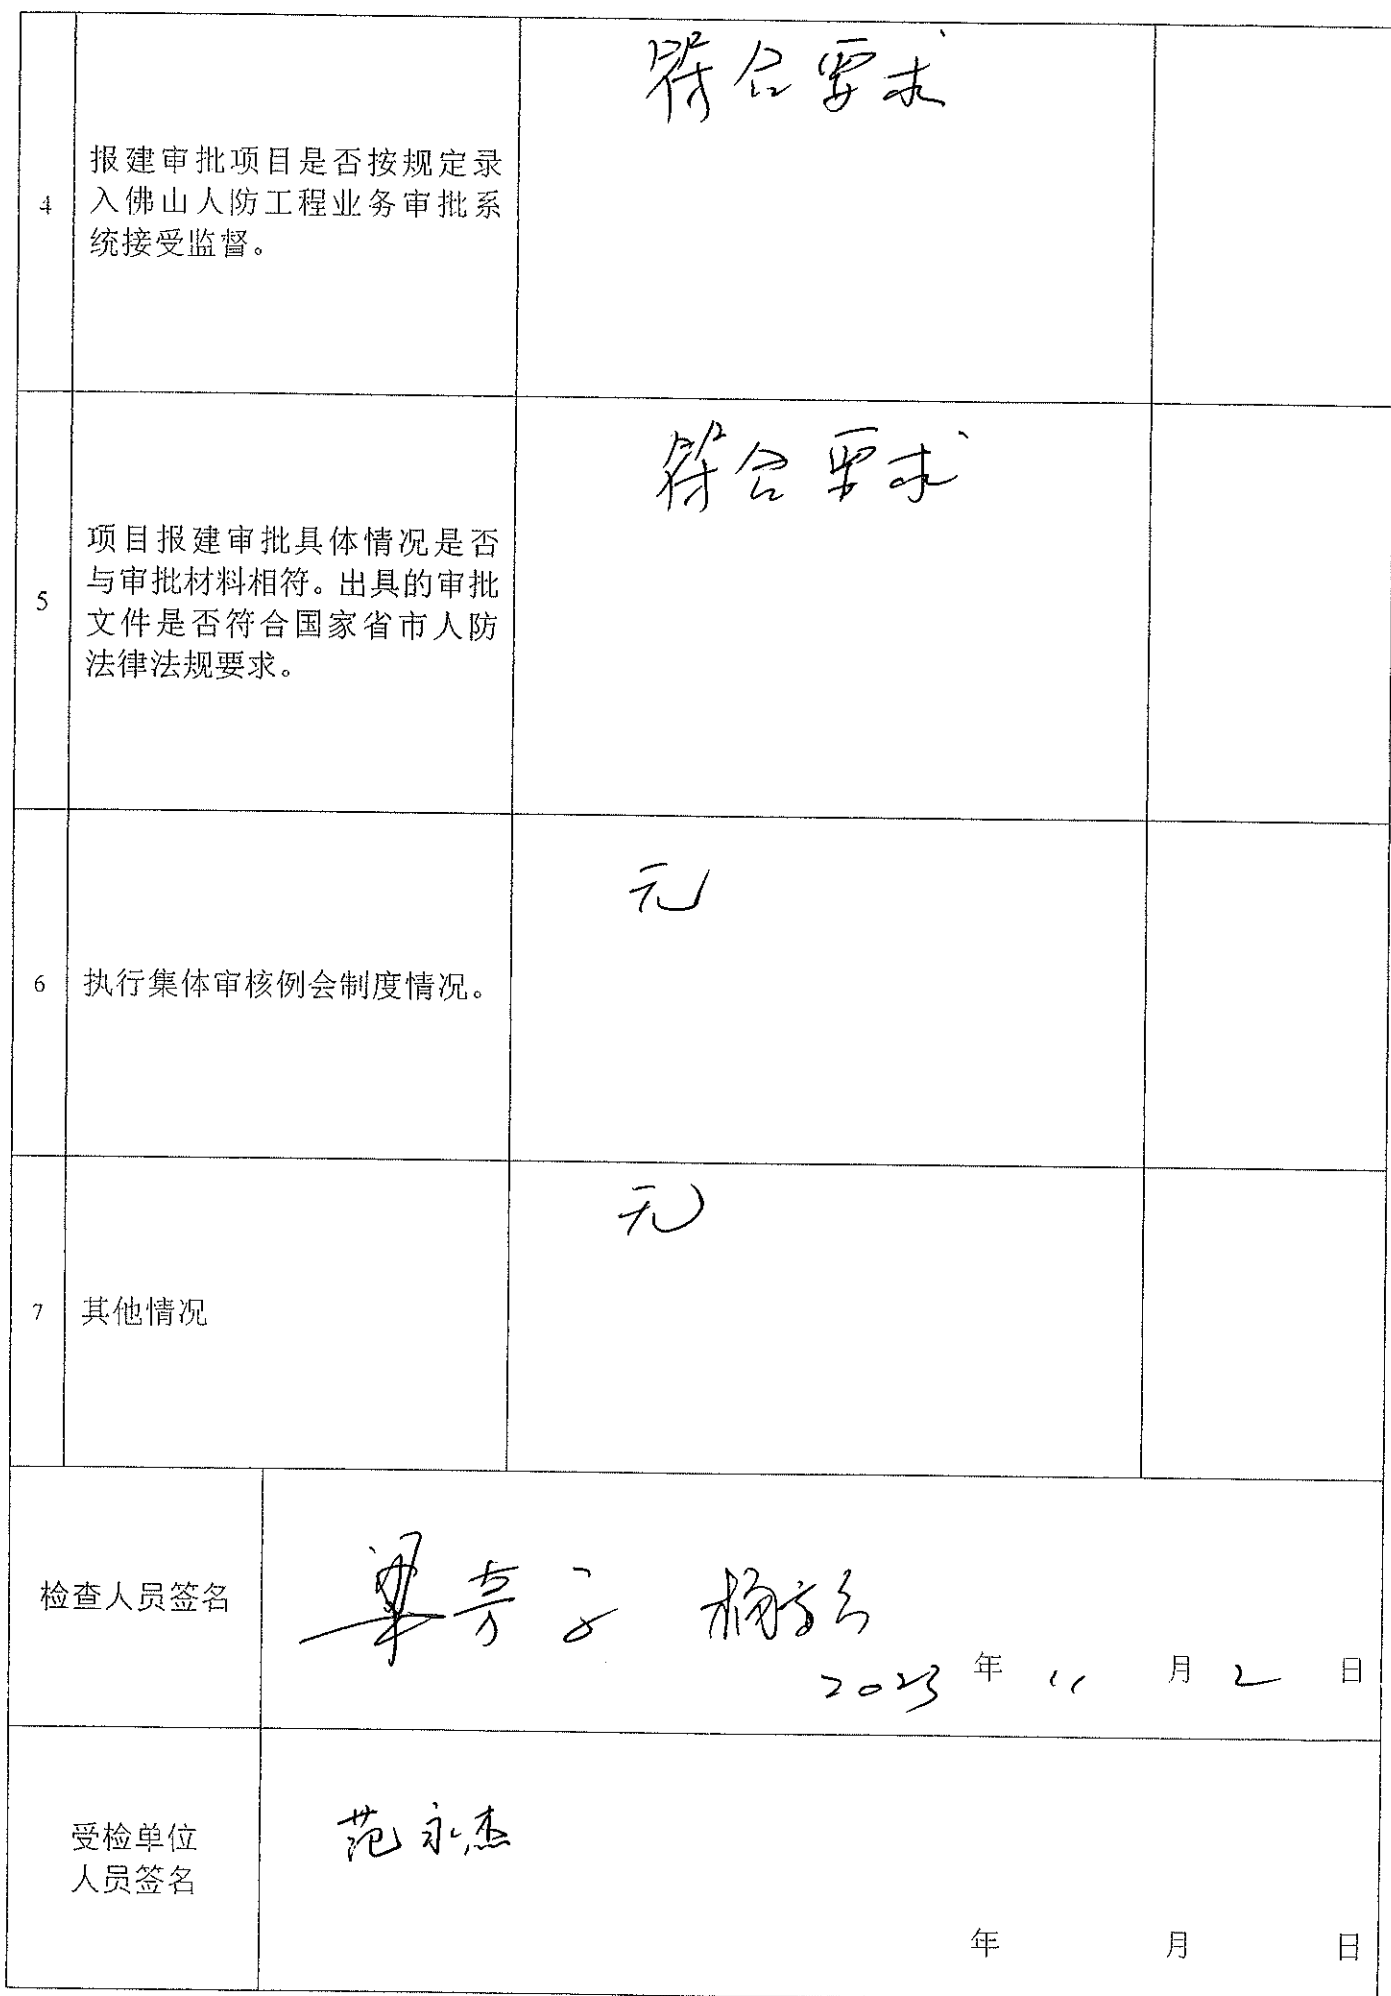 符合要求
4
报建审批项目是否按规定录
入佛山人防工程业务审批系
统接受监督。
符合要求
5
项目报建审批具体情况是否
与审批材料相符。出具的审批
文件是否符合国家省市人防
法律法规要求。
无
6
执行集体审核例会制度情况。
无
7
其他情况
检查人员签名
2023 年 11 月 2 日
范永杰
受检单位
人员签名
年 月 日